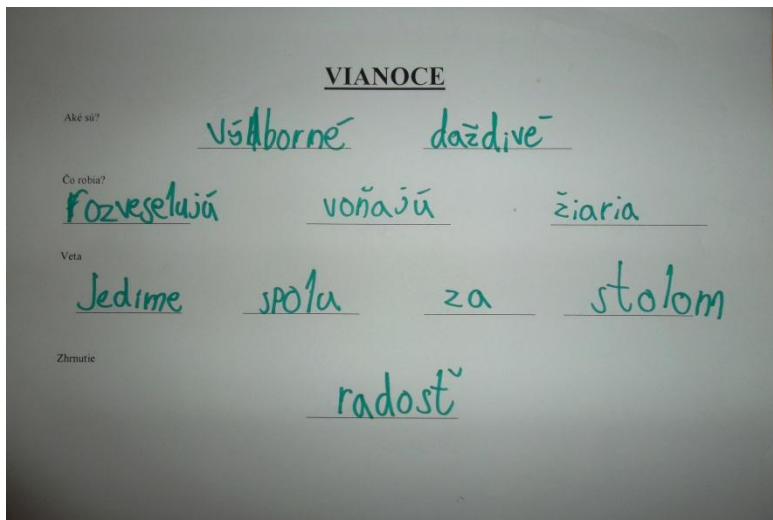 VIANOCE
Aké sú?
výborné daždivé
Čo robia?
rozveselujú voňajú žiaria
Veta
Jedime spolu za stolom
Zhrnutie
radosť